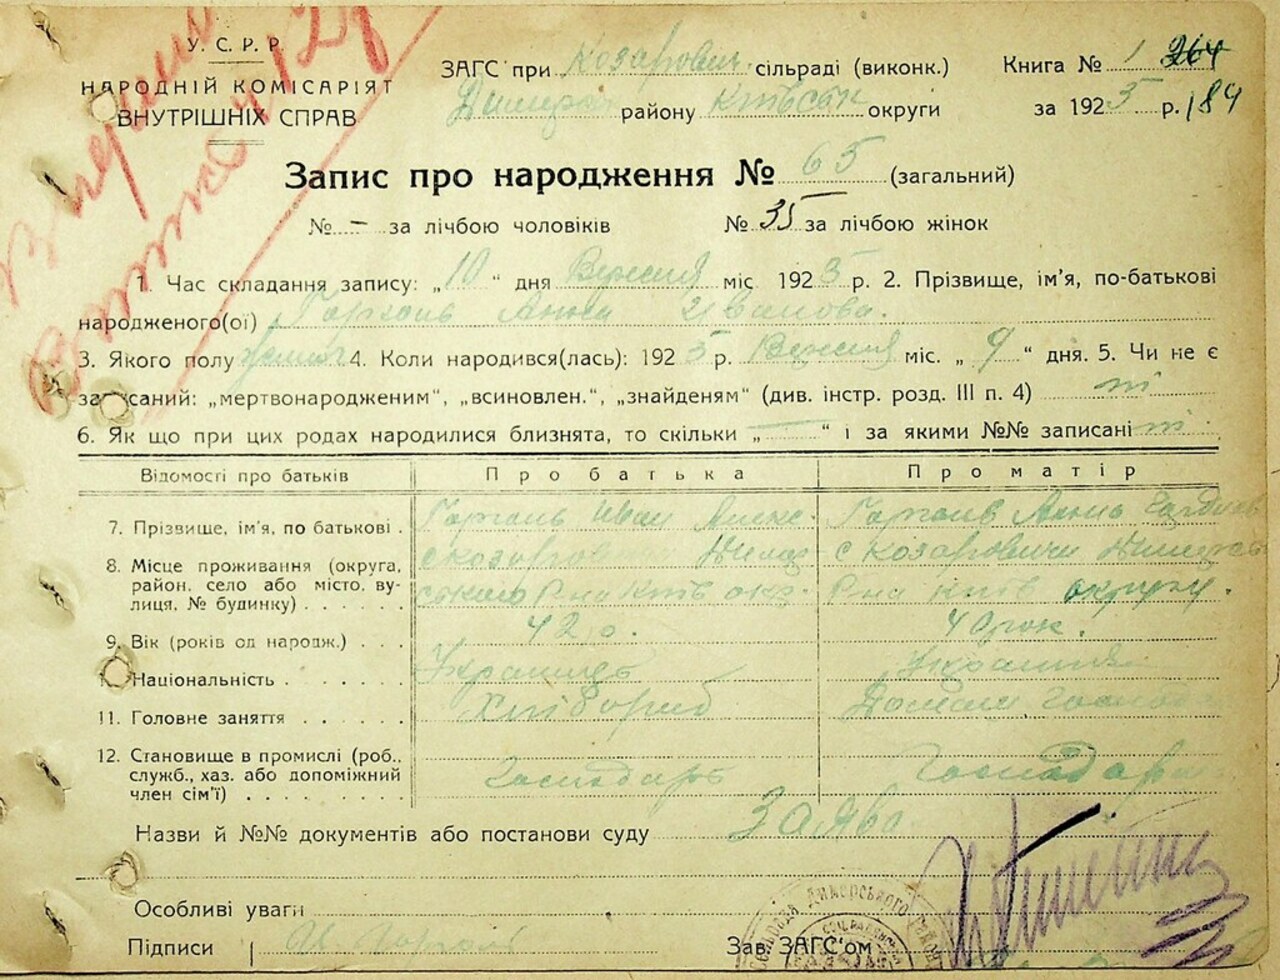 У.С.Р.Р.
НАРОДНІЙ КОМІСАРІЯТ
ВНУТРІШНІХ СПРАВ
ЗАГС при Козарович. сільраді (виконк.)
Димерс району Київськ округи
Книга № 1 264
за 1925 р. 184
Запис про народження № 65 (загальний)
№ – за лічбою чоловіків № 35 за лічбою жінок
1. Час складання запису: „10“ дня Вересня міс. 1925 р. 2. Прізвище, ім'я, по-батькові
народженого(ої) Анна Иванова.
3. Якого полу жіноч 4. Коли народився(лась): 1925 р. Вересня міс. „9“ дня. 5. Чи не є
записаний: „мертвонародженим“, „всиновлен.“, „знайденям“ (див. інстр. розд. III п. 4) ні
6. Як що при цих родах народилися близнята, то скільки „—“ і за якими №№ записані ні
Відомості про батьків Про батька Про матір
7. Прізвище, ім'я, по батькові . Иван Анна
8. Місце проживання (округа, с Козарович с Козаровичи
район, село або місто, ву- Р-на Київ окр. Р-на Київ округу.
лиця, № будинку) . . . . . .
9. Вік (років од народж.) . . . 42 р. 40 рок.
10. Національність . . . . . . Украинец Украинка
11. Головне заняття . . . . . . Хлібороб Домашн господ
12. Становище в промислі (роб.,
служб., хаз. або допоміжний Господарь Господарка
член сім'ї) . . . . . . . .
Назви й №№ документів або постанови суду Заява
Особливі уваги
Підписи Зав. ЗАГС'ом
Димерського